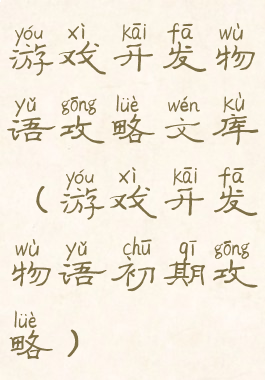 yóu xì kāi fā wù
游戏开发物
yǔ gōng lüè wén kù
语攻略文库
yóu xì kāi fā
(游戏开发
wù yǔ chū qī gōng
物语初期攻
lüè
略)